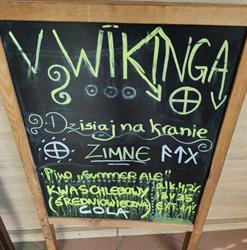 V WIKINGA
Dzisiaj na kranie
ZIMNE ᚨᛏᚷ
PIWO „SUMMER ALE”
KWAS CHLEBOWY
(ŚREDNIOWIECZNA)
COLA